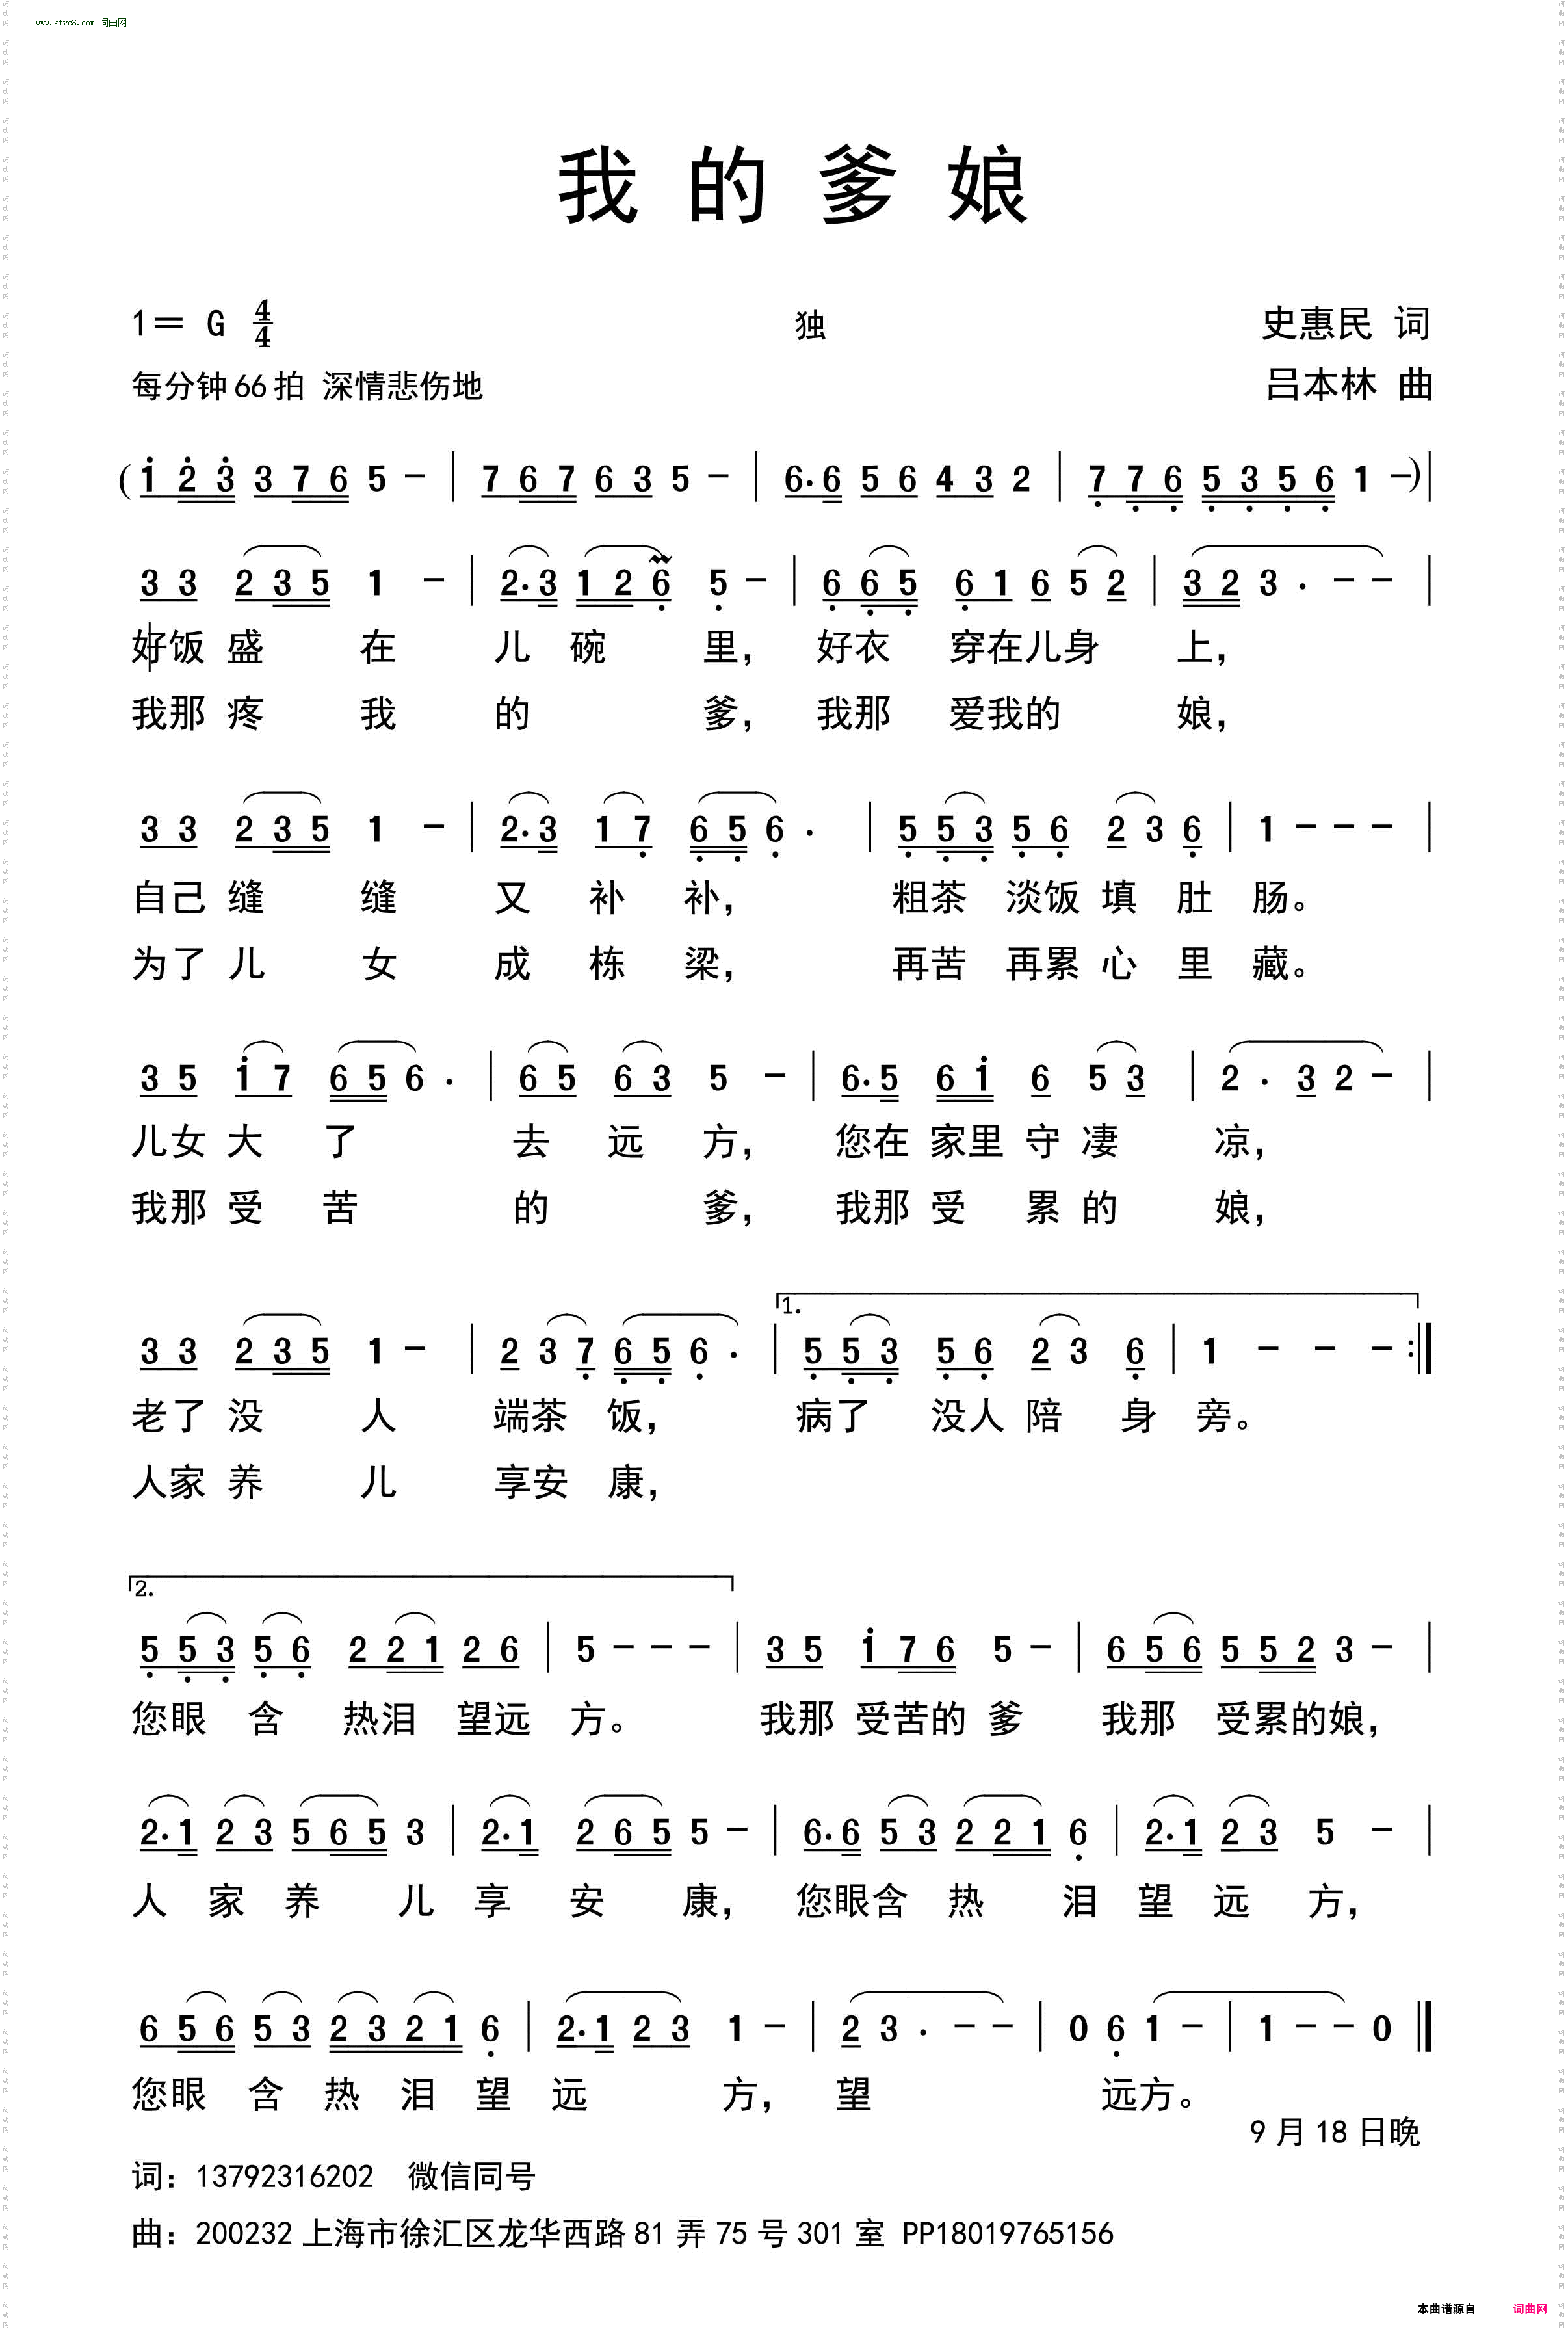 www.ktvc8.com 词曲网
我的爹娘
1= G 4/4 独 史惠民 词
每分钟66拍 深情悲伤地 吕本林 曲
(1 2 3 3 7 6 5 - | 7 6 7 6 3 5 - | 6. 6 5 6 4 3 2 | 7 7 6 5 3 5 6 1 -)|
3 3 2 3 5 1 - | 2. 3 1 2 6 5 - | 6 6 5 6 1 6 5 2 | 3 2 3 . - - |
好饭 盛 在 儿 碗 里, 好衣 穿在儿身 上,
我那 疼 我 的 爹, 我那 爱我的 娘,
3 3 2 3 5 1 - | 2. 3 1 7 6 5 6 . | 5 5 3 5 6 2 3 6 | 1 - - - |
自己 缝 缝 又 补 补, 粗茶 淡饭 填 肚 肠。
为了 儿 女 成 栋 梁, 再苦 再累 心 里 藏。
3 5 1 7 6 5 6 . | 6 5 6 3 5 - | 6. 5 6 1 6 5 3 | 2 . 3 2 - |
儿女 大 了 去 远 方, 您在 家里 守 凄 凉,
我那 受 苦 的 爹, 我那 受 累 的 娘,
1.
3 3 2 3 5 1 - | 2 3 7 6 5 6 . | 5 5 3 5 6 2 3 6 | 1 - - - :|
老了 没 人 端茶 饭, 病了 没人 陪 身 旁。
人家 养 儿 享安 康,
2.
5 5 3 5 6 2 2 1 2 6 | 5 - - - | 3 5 1 7 6 5 - | 6 5 6 5 5 2 3 - |
您眼 含 热泪 望远 方。 我那 受苦的 爹 我那 受累的娘,
2. 1 2 3 5 6 5 3 | 2. 1 2 6 5 5 - | 6. 6 5 3 2 2 1 6 | 2. 1 2 3 5 - |
人 家 养 儿 享 安 康, 您眼含 热 泪 望 远 方,
6 5 6 5 3 2 3 2 1 6 | 2. 1 2 3 1 - | 2 3 . - - | 0 6 1 - | 1 - - 0 |
您眼 含 热 泪 望 远 方, 望 远方。
9月18日晚
词: 13792316202 微信同号
曲: 200232上海市徐汇区龙华西路81弄75号301室 PP18019765156
本曲谱源自 词曲网